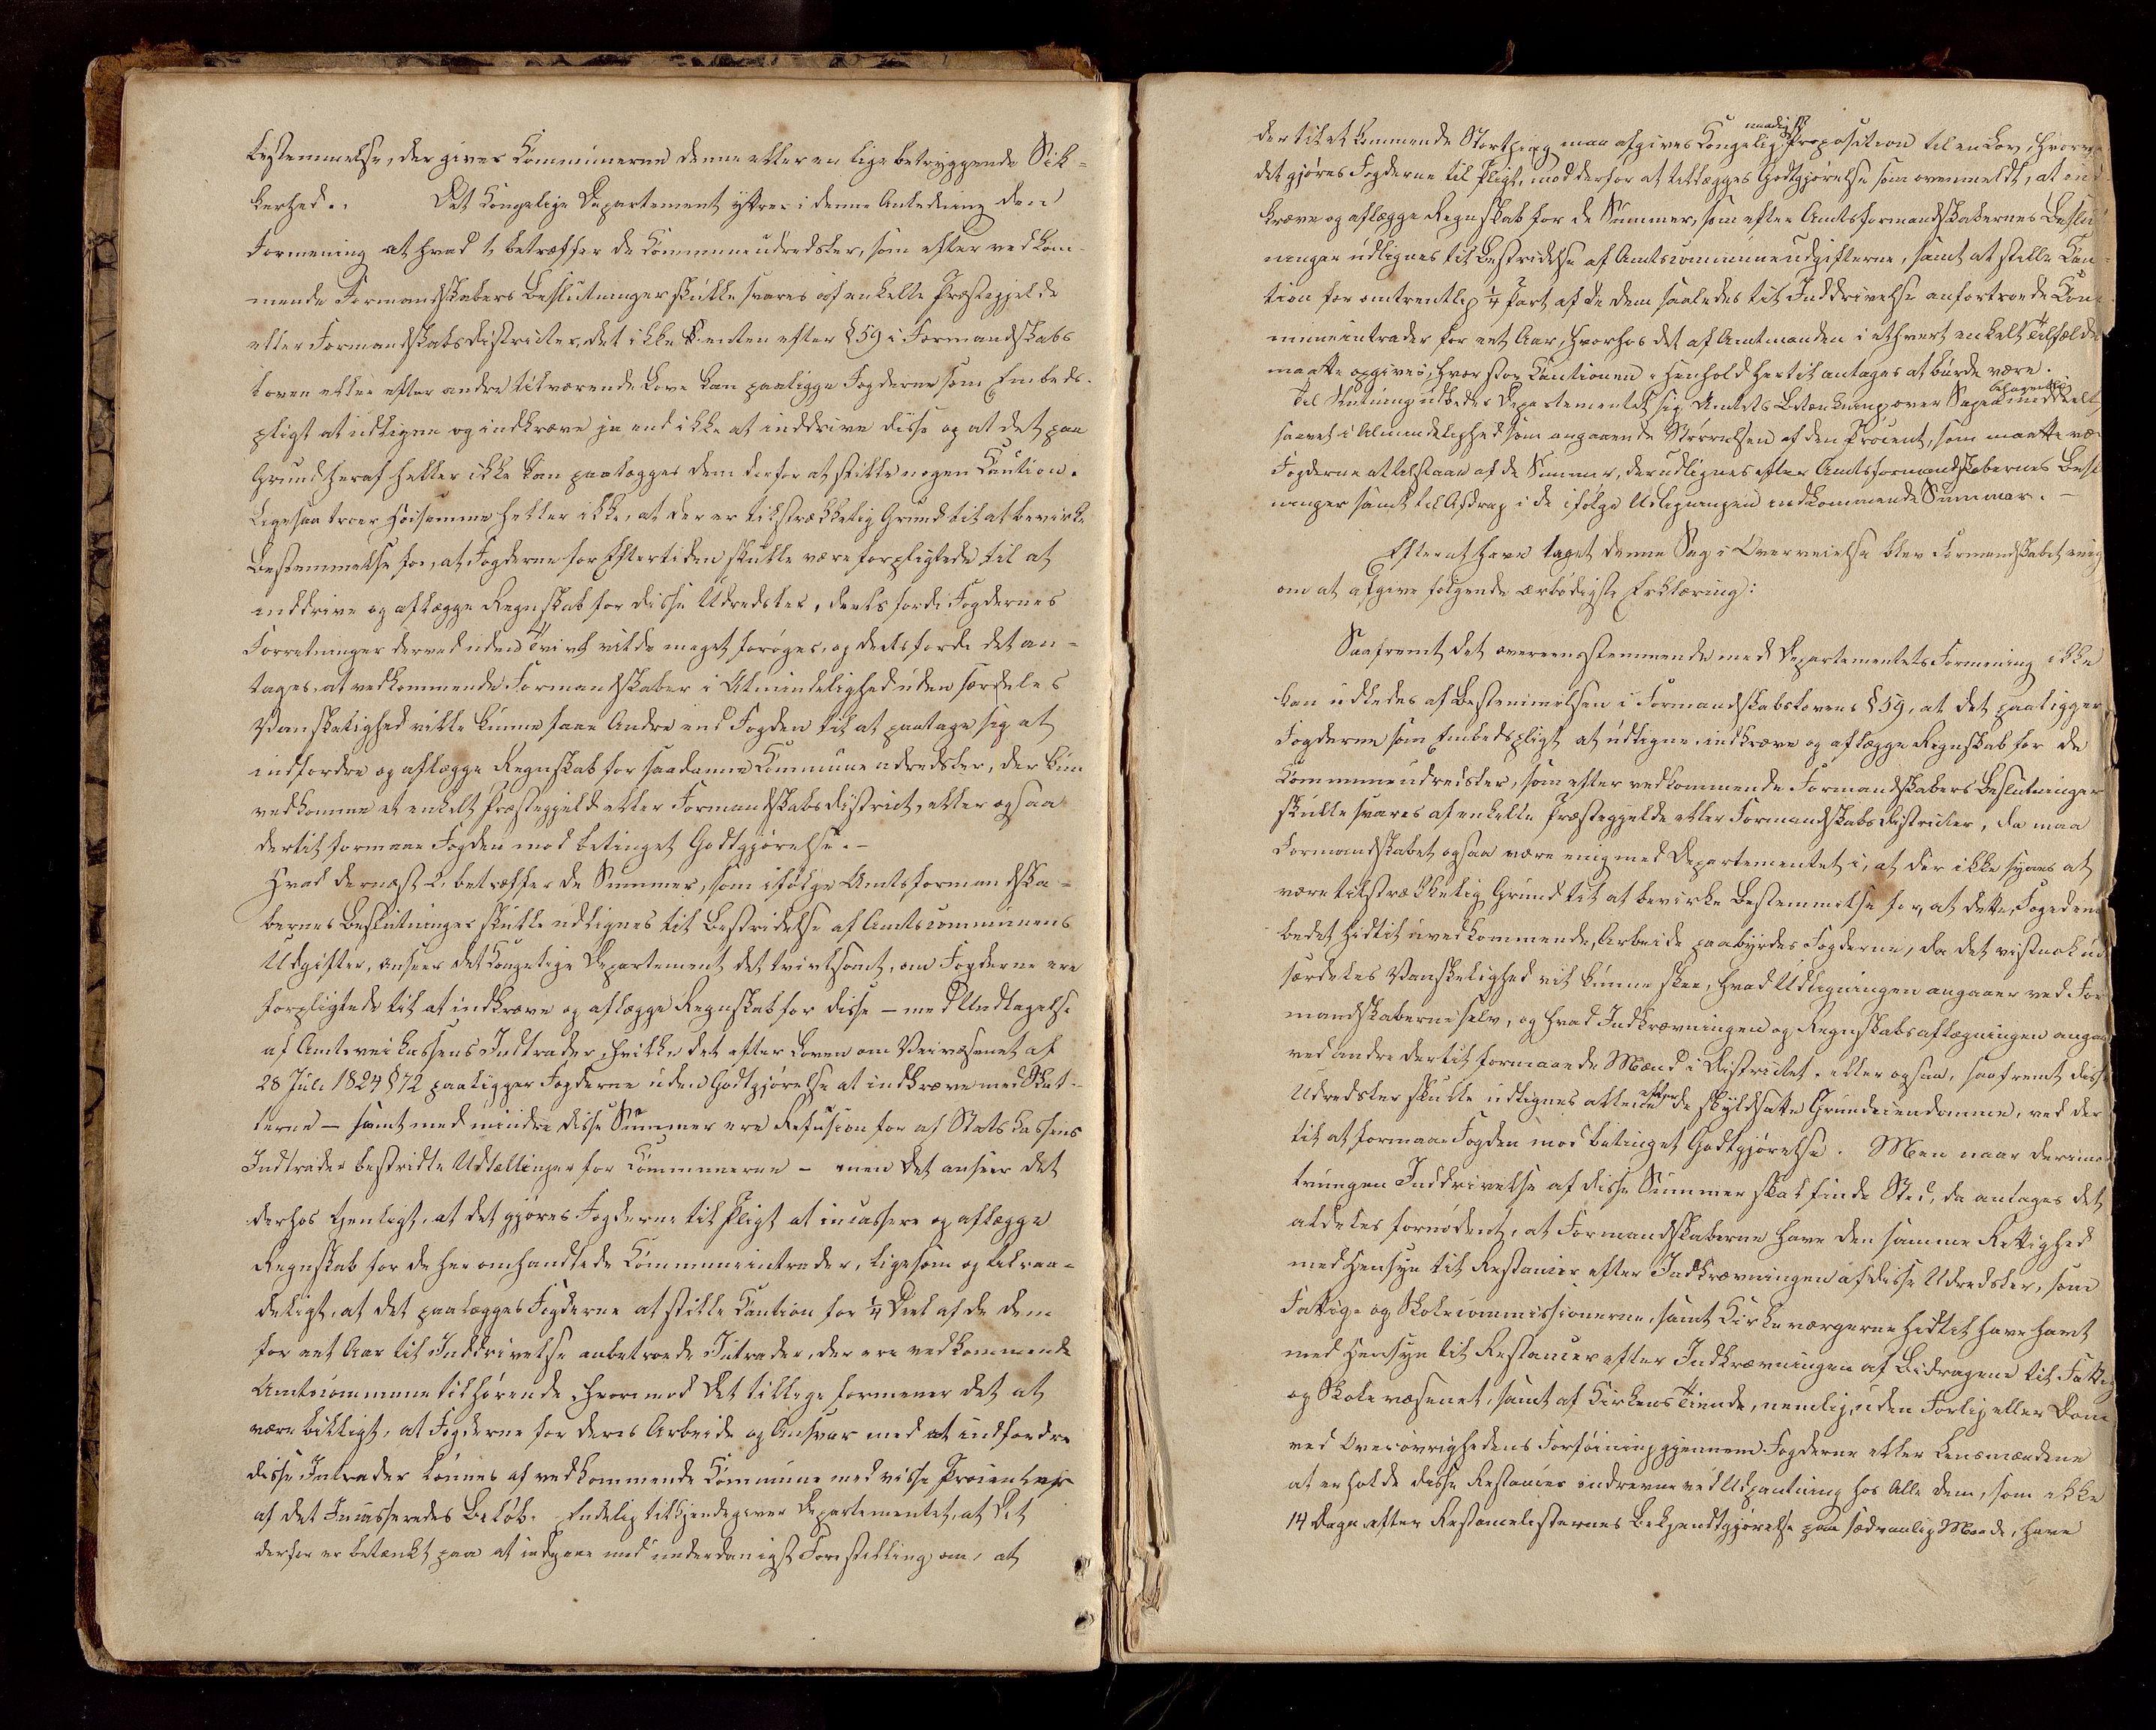 bestemmelse, der giver Communerne denne eller en lige betryggende Sik-
kerhed. Det Kongelige Departement yttrer i denne Anledning den
Formening at hvad 1, betræffer de Communeudredsler, som efter vedkom-
mende Formandskabers Beslutninger skulle svares af enkelte Præstegjelde
eller Formandskabsdistricter, det ikke enten efter § 59 i Formandskabs
loven eller efter andre tilværende Love kan paaligge Fogderne som Embeds-
pligt at udligne og indkræve ja end ikke at inddrive disse og at det paa
Grund heraf heller ikke kan paalægges dem derfor at stille nogen Caution.
Ligesaa troer Høisamme heller ikke, at der er tilstrækkelig Grund til at bevirke
Bestemmelse for, at Fogderne for Eftertiden skulle være forpligtede til at
inddrive og aflægge Regnskab for disse Udredsler, deels fordi Fogdernes
Forretninger derved uden Tvivl vilde meget forøges, og deels fordi det an-
tages, at vedkommende Formandskaber i Almindelighed uden særdeles
Vanskelighed ville kunne faae Andre end Fogden til at paatage sig at
indfordre og aflægge Regnskab for saadanne Communeudredsler, der kun
vedkomme et enkelt Præstegjeld eller Formandskabsdistrict, eller ogsaa
dertil formaae Fogden mod betinget Godtgjørelse. -
Hvad dernæst 2, betræffer de Summer, som ifølge Amtsformandska-
bernes Beslutninger skulle udlignes til Bestridelse af Amtscommunens
Udgifter, anseer det Kongelige Departement det tvivlsomt, om Fogderne ere
forpligtede til at indkræve og aflægge Regnskab for disse - med Undtagelse
af Amtsveikassens Indtrader, hvilke det efter Loven om Veivæsenet af
28 Juli 1824 § 72 paaligger Fogderne uden Godtgjørelse at indkræve med Skat-
terne - samt med mindre disse Summer ere Refusion for af Statskassens
Indtrader bestridte Udtællinger for Communerne - men det anseer det
derhos tjenligt, at det gjøres Fogderne til Pligt at incassere og aflægge
Regnskab for de her omhandlede Communeintrader, ligesom og tilraa-
deligt, at det paalægges Fogderne at stille Caution for ¼ Deel af de dem
for eet Aar til Inddrivelse anbetroede Intrader, der ere vedkommende
Amtscommune tilhørende, hvorimod det tillige formener det at
være billigt, at Fogderne for deres Arbeide og Ansvar med at indfordre
disse Intrader lønnes af vedkommende Commune med visse Procenter
af det Incasseredes Beløb. Endelig tilkjendegiver Departementet, at det
derfor er betænkt paa at indgaae med underdanigst Forestilling om, at
der til et kommende Storthing maa afgives Kongelig naadig Proposition til en Lov, hvorved
det gjøres Fogderne til Pligt, mod derfor at tillægges Godtgjørelse som ovenmeldt, at ind
kræve og aflægge Regnskab for de Summer, som efter Amtsformandskabernes Beslut
ninger udlignes til Bestridelse af Amtscommuneudgifterne, samt at stille Cau-
tion for omtrentlig ¼ Part af de dem saaledes til Inddrivelse anfortroede Com
muneintrader for eet Aar, hvorhos det af Amtmanden i ethvert enkelt Tilfælde
maatte opgives, hvor stor Cautionen i Henhold hertil antages at burde være.
Til Slutning udbeder Departementet sig Amtets Betænkning over Sagen meddeelt,
saavel i Almindelighed som angaaende Størrelsen af den Procent, som maatte væ
Fogderne at tilstaae af de Summer, der udlignes efter Amtsformandskabernes Besl
ninger samt til Afdrag i de ifølge Udligningen indkommende Summer. -
Efter at have taget denne Sag i Overveielse blev Formandskabet enig
om at afgive følgende ærbødigste Erklæring:
Saafremt det overeensstemmende med Departementets Formening ikke
kan udledes af Bestemmelsen i Formandskabslovens § 59, at det paaligger
Fogderne som Embedspligt at udligne, indkræve og aflægge Regnskab for de
Communeudredsler, som efter vedkommende Formandskabers Beslutninger
skulle svares af enkelte Præstegjelde eller Formandskabsdistricter, da maa
Formandskabet ogsaa være enig med Departementet i, at der ikke synes at
være tilstrækkelig Grund til at bevirke Bestemmelse for, at dette, Fogedem
bedet hidtil uvedkommende, Arbeide paabyrdes Fogderne, da det vistnok ud
særdeles Vanskelighed vil kunne skee, hvad Udligningen angaaer ved For
mandskaberne selv, og hvad Indkrævningen og Regnskabsaflægningen angaa
ved andre dertil formaaede Mænd i Districtet, eller ogsaa, saafremt disse
Udredsler skulle udlignes alleene efter de skyldsatte Grundeiendomme, ved der
til at formaae Fogden mod betinget Godtgjørelse. Men naar derimod
tvungen Inddrivelse af disse Summer skal finde Sted, da antages det
aldeles fornødent, at Formandskaberne have den samme Rettighed
med Hensyn til Restancer efter Indkrævningen af disse Udredsler, som
Fattige og Skolecommissionerne, samt Kirkeværgerne hidtil have havt
med Hensyn til Restancer efter Indkrævningen af Bidragene til Fattig
og Skolevæsenet, samt af Kirkens Tiende, nemlig, uden Forlig eller Dom
ved Overøvrighedens Forføining gjennem Fogderne eller Lensmændene
at erholde disse Restancer inddrevne ved Udpantning hos Alle dem, som ikke
14 Dage efter Restancelisternes Bekjendtgjørelse paa sædvanlig Maade, have